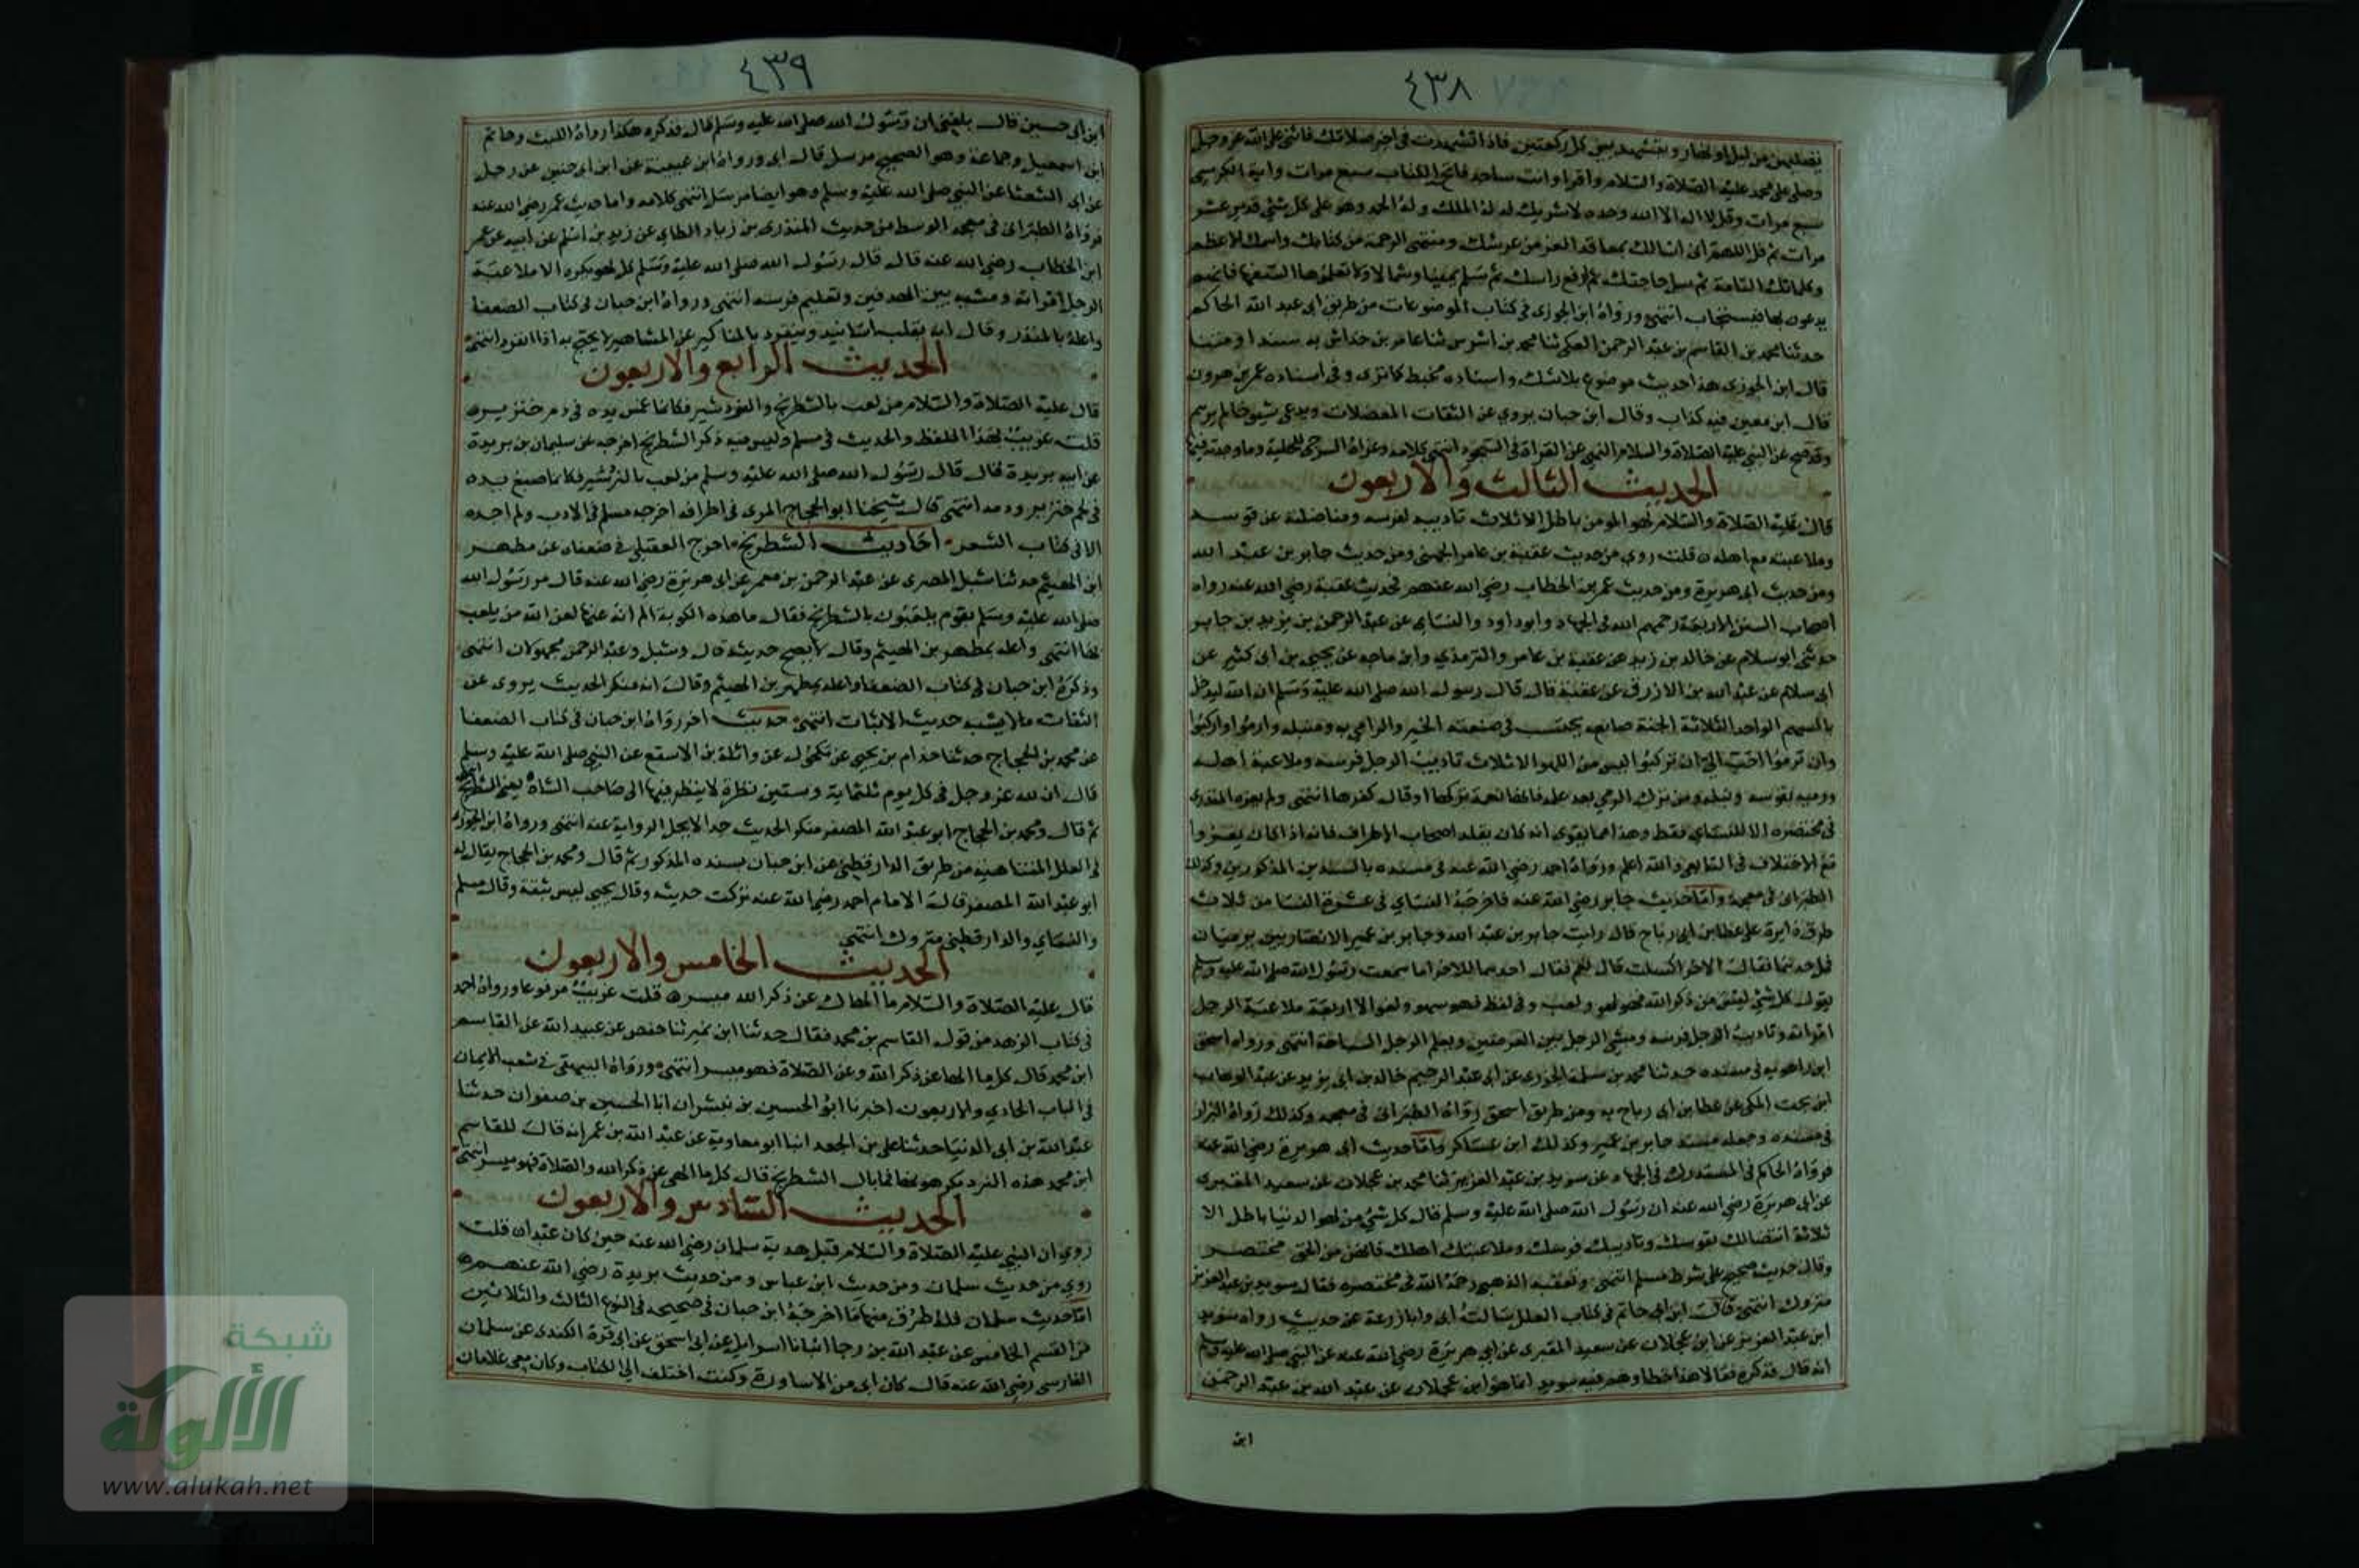 ٤٣٨
تصليهن من ليل او نهار وتتشهد بين كل ركعتين فاذا تشهدت في اخر صلاتك فاثن على الله عز وجل
وصلي على محمد عليه الصلاة والسلام واقرا وانت ساجد فاتحة الكتاب سبع مرات واية الكرسي
سبع مرات وقل لا اله الا الله وحده لا شريك له له الملك وله الحمد وهو على كل شئ قدير عشر
مرات ثم قل اللهم اني اسالك بمعاقد العز من عرشك ومنتهى الرحمة من كتابك واسمك الاعظم
وكلماتك التامة ثم سل حاجتك ثم ارفع راسك ثم سلم يمينا وشمالا ولا تعلموها السفها فانهم
يدعون بها فيستجاب انتهى ورواه ابن الجوزي في كتاب الموضوعات من طريق ابي عبد الله الحاكم
حدثنا محمد بن القاسم بن عبد الرحمن العتكي ثنا محمد بن اشرس ثنا عامر بن خداش به سندا ومتنا
قال ابن الجوزي هذا حديث موضوع بلا شك واسناده مخبط كما ترى وفي اسناده عمر بن هرون
قال ابن معين فيه كذاب وقال ابن حبان يروي عن الثقات المعضلات ويدعي شيوخا لم يرهم
وقد صح عن النبي عليه الصلاة والسلام النهي عن القراة في السجود انتهى كلامه وعزاه السروجي للحلية وما وجدته فيها
الحديث الثالث والاربعون
قال عليه الصلاة والسلام لهو المومن باطل الا ثلاث تاديبه لفرسه ومناضلته عن قوسه
وملاعبته مع اهله قلت روي من حديث عقبة بن عامر الجهني ومن حديث جابر بن عبد الله
ومن حديث ابي هريرة ومن حديث عمر بن الخطاب رضي الله عنهم فحديث عقبة رضي الله عنه رواه
اصحاب السنن الاربعة رحمهم الله في الجهاد وابو داود والنساي عن عبد الرحمن بن يزيد بن جابر
حدثني ابو سلام عن خالد بن زيد عن عقبة بن عامر والترمذي وابن ماجه عن يحيى بن ابي كثير عن
ابي سلام عن عبد الله بن الازرق عن عقبة قال قال رسول الله صلى الله عليه وسلم ان الله ليدخل
بالسهم الواحد الثلاثة الجنة صانعه يحتسب في صنعته الخير والرامي به ومنبله وارموا واركبوا
وان ترموا احب الي ان تركبوا ليس من اللهو الا ثلاث تاديب الرجل فرسه وملاعبة اهله
ورميه بقوسه ونبله ومن ترك الرمي بعد علمه فانها نعمة تركها او قال كفرها انتهى ولم يعزه المنذري
في مختصره الا للنساي فقط وهذا مما يقوي انه كان يقلد اصحاب الاطراف فانه اذا كان يعزوا
مع الاختلاف في التابعي والله اعلم ورواه احمد رضي الله عنه في مسنده بالسندين المذكورين وكذلك
الطبراني في معجمه واما حديث جابر رضي الله عنه فاخرجه النساي في عشرة النسا من ثلاث
طرق دايرة على عطا بن ابي رباح قال رايت جابر بن عبد الله وجابر بن عمير الانصاريين يرميان
فمل احدهما فقال الاخر اكسلت قال نعم فقال احدهما للاخر اما سمعت رسول الله صلى الله عليه وسلم
يقول كل شئ ليس من ذكر الله فهو لهو ولعب وفي لفظ فهو سهو ولغو الا اربعة ملاعبة الرجل
امراته وتاديب الرجل فرسه ومشي الرجل بين الغرضين وتعلم الرجل السباحة انتهى ورواه اسحق
ابن راهويه في مسنده حدثنا محمد بن سلمة الجزري عن ابي عبد الرحيم خالد بن ابي يزيد عن عبد الوهاب
ابن بخت المكي عن عطا بن ابي رباح به ومن طريق اسحق رواه الطبراني في معجمه وكذلك رواه البزار
في مسنده وجعله مسند جابر بن عمير وكذلك ابن عساكر واما حديث ابي هريرة رضي الله عنه
فرواه الحاكم في المستدرك في الجهاد عن سويد بن عبد العزيز ثنا محمد بن عجلان عن سعيد المقبري
عن ابي هريرة رضي الله عنه ان رسول الله صلى الله عليه وسلم قال كل شئ من لهو الدنيا باطل الا
ثلاثة انتضالك بقوسك وتاديبك فرسك وملاعبتك اهلك فانهن من الحق مختصر
وقال حديث صحيح على شرط مسلم انتهى وتعقبه الذهبي رحمه الله في مختصره فقال سويد بن عبد العزيز
متروك انتهى قال ابن ابي حاتم في كتاب العلل سالت ابي وابا زرعة عن حديث رواه سويد
ابن عبد العزيز عن ابن عجلان عن سعيد المقبري عن ابي هريرة رضي الله عنه عن النبي صلى الله عليه وسلم
انه قال فذكره فقالا هذا خطا وهم فيه سويد انما هو ابن عجلان عن عبد الله بن عبد الرحمن
ابن
٤٣٩
ابن ابي حسين قال بلغني ان رسول الله صلى الله عليه وسلم قال فذكره هكذا رواه الليث وحاتم
ابن اسمعيل وجماعة وهو الصحيح مرسل قال ابي ورواه ابن عيينة عن ابن ابي حسين عن رجل
عن ابي الشعثا عن النبي صلى الله عليه وسلم وهو ايضا مرسل انتهى كلامه واما حديث عمر رضي الله عنه
فرواه الطبراني في معجمه الوسط من حديث المنذر بن زياد الطاي عن زيد بن اسلم عن ابيه عن عمر
ابن الخطاب رضي الله عنه قال قال رسول الله صلى الله عليه وسلم كل لهو يكره الا ملاعبة
الرجل امراته ومشيه بين الهدفين وتعليم فرسه انتهى ورواه ابن حبان في كتاب الضعفا
واعله بالمنذر وقال انه يقلب الاسانيد وينفرد بالمناكير عن المشاهير لا يحتج به اذا انفرد انتهى
الحديث الرابع والاربعون
قال عليه الصلاة والسلام من لعب بالشطرنج والنردشير فكانما غمس يده في دم خنزير
قلت غريب بهذا اللفظ والحديث في مسلم وليس فيه ذكر الشطرنج اخرجه عن سليمان بن بريدة
عن ابيه بريدة قال قال رسول الله صلى الله عليه وسلم من لعب بالنردشير فكانما صبغ يده
في لحم خنزير ودمه انتهى قال شيخنا ابو الحجاج المزي في اطرافه اخرجه مسلم في الادب ولم اجده
الا في كتاب الشعر احاديث الشطرنج اخرج العقيلي في ضعفاه عن مطهر
ابن الهيثم حدثنا شبل المصري عن عبد الرحمن بن معمر عن ابي هريرة رضي الله عنه قال مر رسول الله
صلى الله عليه وسلم بقوم يلعبون بالشطرنج فقال ما هذه الكوبة الم انه عنها لعن الله من يلعب
بها انتهى واعله بمطهر بن الهيثم وقال لا يصح حديثه قال وشبل وعبد الرحمن مجهولان انتهى
وذكره ابن حبان في كتاب الضعفا واعله بمطهر بن الهيثم وقال انه منكر الحديث يروي عن
الثقات ما لا يشبه حديث الاثبات انتهى حديث اخر رواه ابن حبان في كتاب الضعفا
عن محمد بن الحجاج حدثنا حذام بن يحيى عن مكحول عن واثلة بن الاسقع عن النبي صلى الله عليه وسلم
قال ان لله عز وجل في كل يوم ثلثماية وستين نظرة لا ينظر فيها الى صاحب الشاه يعني الشطرنج
ثم قال ومحمد بن الحجاج ابو عبد الله المصفر منكر الحديث جدا لا تحل الرواية عنه انتهى ورواه ابن الجوزي
في العلل المتناهية من طريق الدارقطني عن ابن حبان بسنده المذكور ثم قال ومحمد بن الحجاج يقال له
ابو عبد الله المصفر قال الامام احمد رضي الله عنه تركت حديثه وقال يحيى ليس بثقة وقال مسلم
والنساي والدارقطني متروك انتهى
الحديث الخامس والاربعون
قال عليه الصلاة والسلام ما الهاك عن ذكر الله فهو ميسر قلت غريب مرفوعا ورواه احمد
في كتاب الزهد من قول القاسم بن محمد فقال حدثنا ابن نمير ثنا حفص عن عبيد الله عن القاسم
ابن محمد قال كل ما الها عن ذكر الله وعن الصلاة فهو ميسر انتهى ورواه البيهقي في شعب الايمان
في الباب الحادي والاربعون اخبرنا ابو الحسين بن بشران انا الحسين بن صفوان حدثنا
عبد الله بن ابي الدنيا حدثنا علي بن الجعد انبا ابو معاوية عن عبد الله بن عمر انه قال للقاسم
ابن محمد هذه النرد تكرهونها فما بال الشطرنج قال كل ما الهى عن ذكر الله والصلاة فهو ميسر انتهى
الحديث السادس والاربعون
روي ان النبي عليه الصلاة والسلام قبل هدية سلمان رضي الله عنه حين كان عبدا قلت
روي من حديث سلمان ومن حديث ابن عباس ومن حديث بريدة رضي الله عنهم
اما حديث سلمان فله طرق منها ما اخرجه ابن حبان في صحيحه في النوع الثالث والثلاثين
من القسم الخامس عن عبد الله بن رجا انبانا اسرايل عن ابي اسحق عن ابي قرة الكندي عن سلمان
الفارسي رضي الله عنه قال كان ابي من الاساورة وكنت اختلف الى الكتاب وكان معي غلامان
شبكة
الألوكة
www.alukah.net